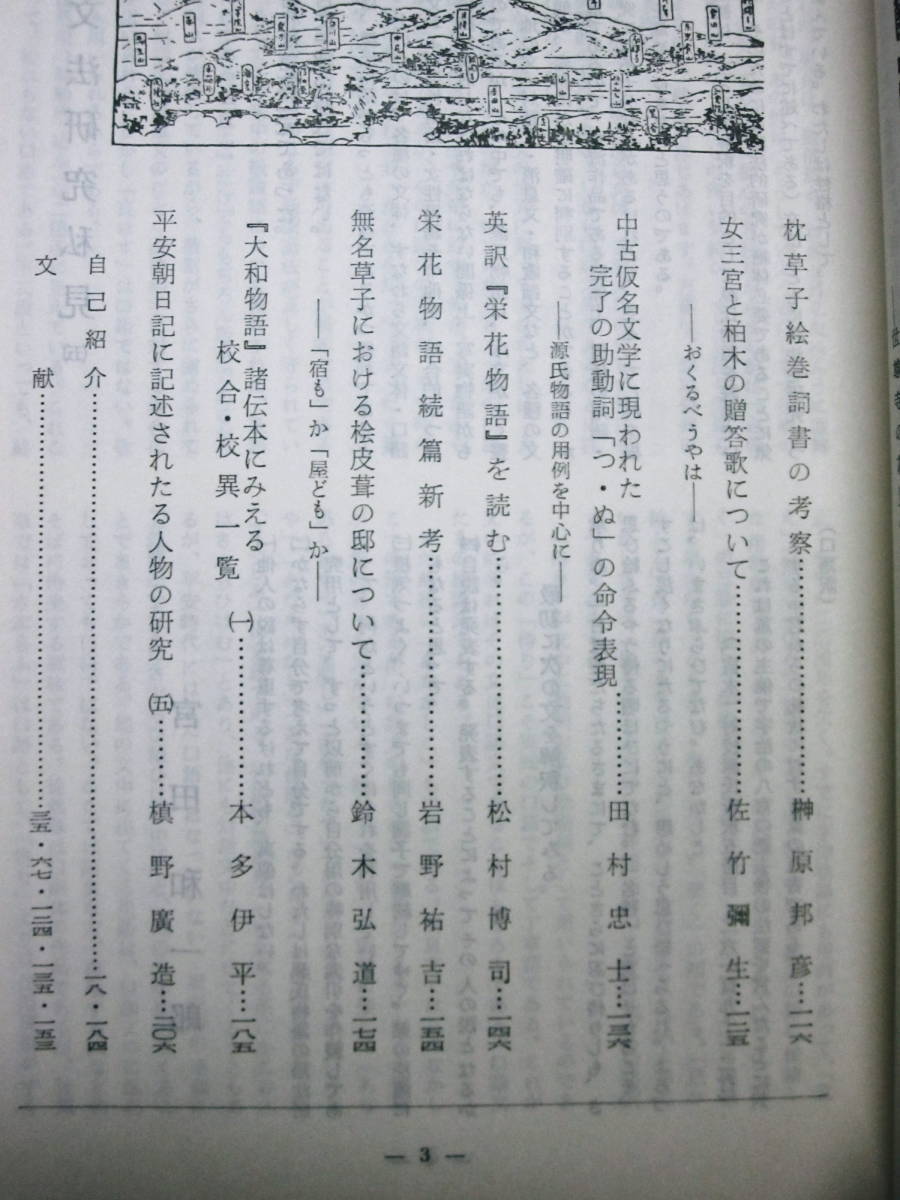 枕草子絵巻詞書の考察……………榊原邦彦…一一六
女三宮と柏木の贈答歌について……………佐竹彌生…一二五
――おくるべうやは――
中古仮名文学に現われた
完了の助動詞「つ・ぬ」の命令表現……………田村忠士…一三六
――源氏物語の用例を中心に――
英訳『栄花物語』を読む……………松村博司…一四六
栄花物語続篇新考……………岩野祐吉…一五四
無名草子における桧皮葺の邸について……………鈴木弘道…一七四
――「宿も」か「屋ども」か――
『大和物語』諸伝本にみえる
校合・校異一覧 ㈠……………本多伊平…一八五
平安朝日記に記述されたる人物の研究 ㈤……………槙野廣造…二〇六
自己紹介……………一八・一八四
文献……………三五・六七・一二四・一三五・一五三
― 3 ―